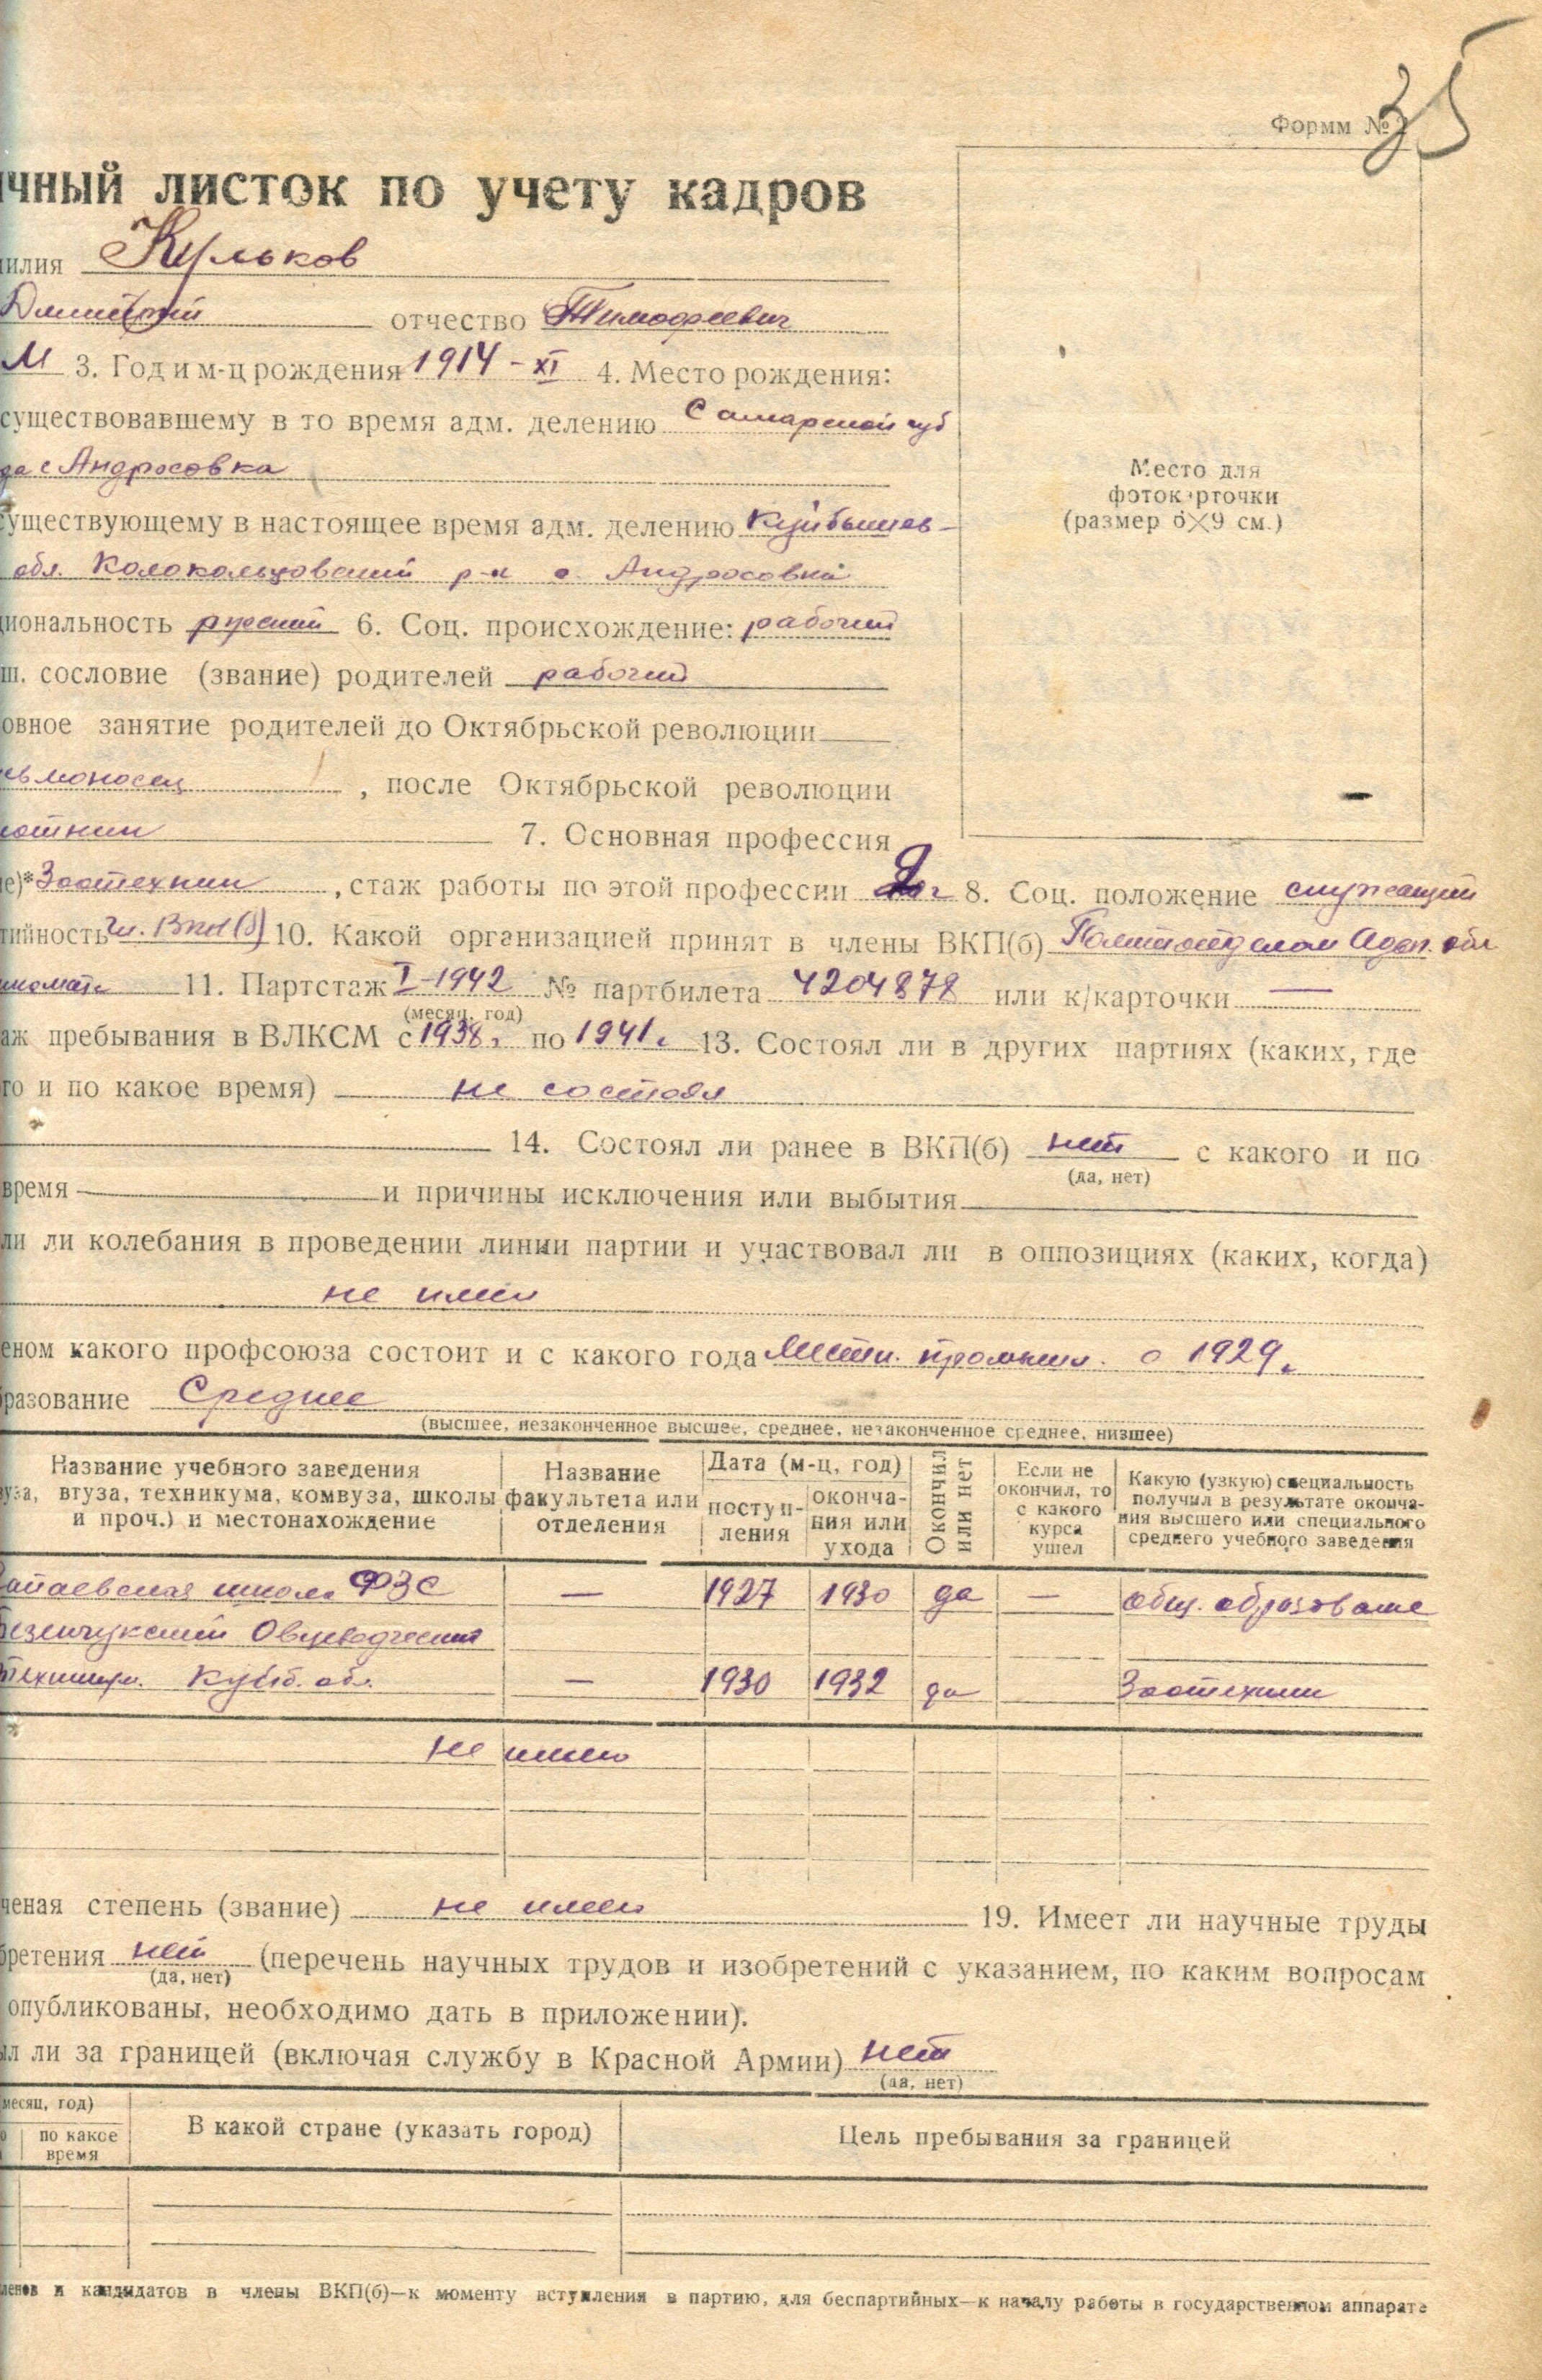 35
Формм № 2
ичный листок по учету кадров
милия Кульков
Дмитрий отчество Тимофеевич
М 3. Год и м-ц рождения 1914 - XI 4. Место рождения:
существовавшему в то время адм. делению Самарской губ
да с Андросовка
существующему в настоящее время адм. делению Куйбышев-
обл. Колокольцовский р-н с. Андросовка
циональность русский 6. Соц. происхождение: рабочий
ш. сословие (звание) родителей рабочий
овное занятие родителей до Октябрьской революции
, после Октябрьской революции
7. Основная профессия
е)* Зоотехник , стаж работы по этой профессии 8. Соц. положение служащий
тийность чл. ВКП(б) 10. Какой организацией принят в члены ВКП(б) Политотделом обл
11. Партстаж I-1942 № партбилета 4204878 или к/карточки —
(месяц, год)
аж пребывания в ВЛКСМ с 1938г. по 1941г. 13. Состоял ли в других партиях (каких, где
го и по какое время) не состоял
14. Состоял ли ранее в ВКП(б) нет с какого и по
(да, нет)
время и причины исключения или выбытия
ли ли колебания в проведении линии партии и участвовал ли в оппозициях (каких, когда)
не имел
еном какого профсоюза состоит и с какого года Местн. промышл. с 1929г.
бразование Среднее
(высшее, незаконченное высшее, среднее, незаконченное среднее, низшее)
Название учебного заведения
вуза, втуза, техникума, комвуза, школы
и проч.) и местонахождение
Название
факультета или
отделения
Дата (м-ц, год)
поступ-
ления
оконча-
ния или
ухода
Окончил
или нет
Если не
окончил, то
с какого
курса
ушел
Какую (узкую) специальность
получил в результате оконча-
ния высшего или специального
среднего учебного заведения
Чапаевская школа ФЗС — 1927 1930 да — общ. образование
Безенчукский Овцеводческий
техникум. Куйб. обл. — 1930 1932 да Зоотехник
не имею
ченая степень (звание) не имею 19. Имеет ли научные труды
бретения нет (перечень научных трудов и изобретений с указанием, по каким вопросам
(да, нет)
опубликованы, необходимо дать в приложении).
ыл ли за границей (включая службу в Красной Армии) нет
(да, нет)
месяц, год)
по какое
время
В какой стране (указать город)
Цель пребывания за границей
Место для
фотокарточки
(размер 6×9 см.)
ленов и кандидатов в члены ВКП(б)—к моменту вступления в партию, для беспартийных—к началу работы в государственном аппарате